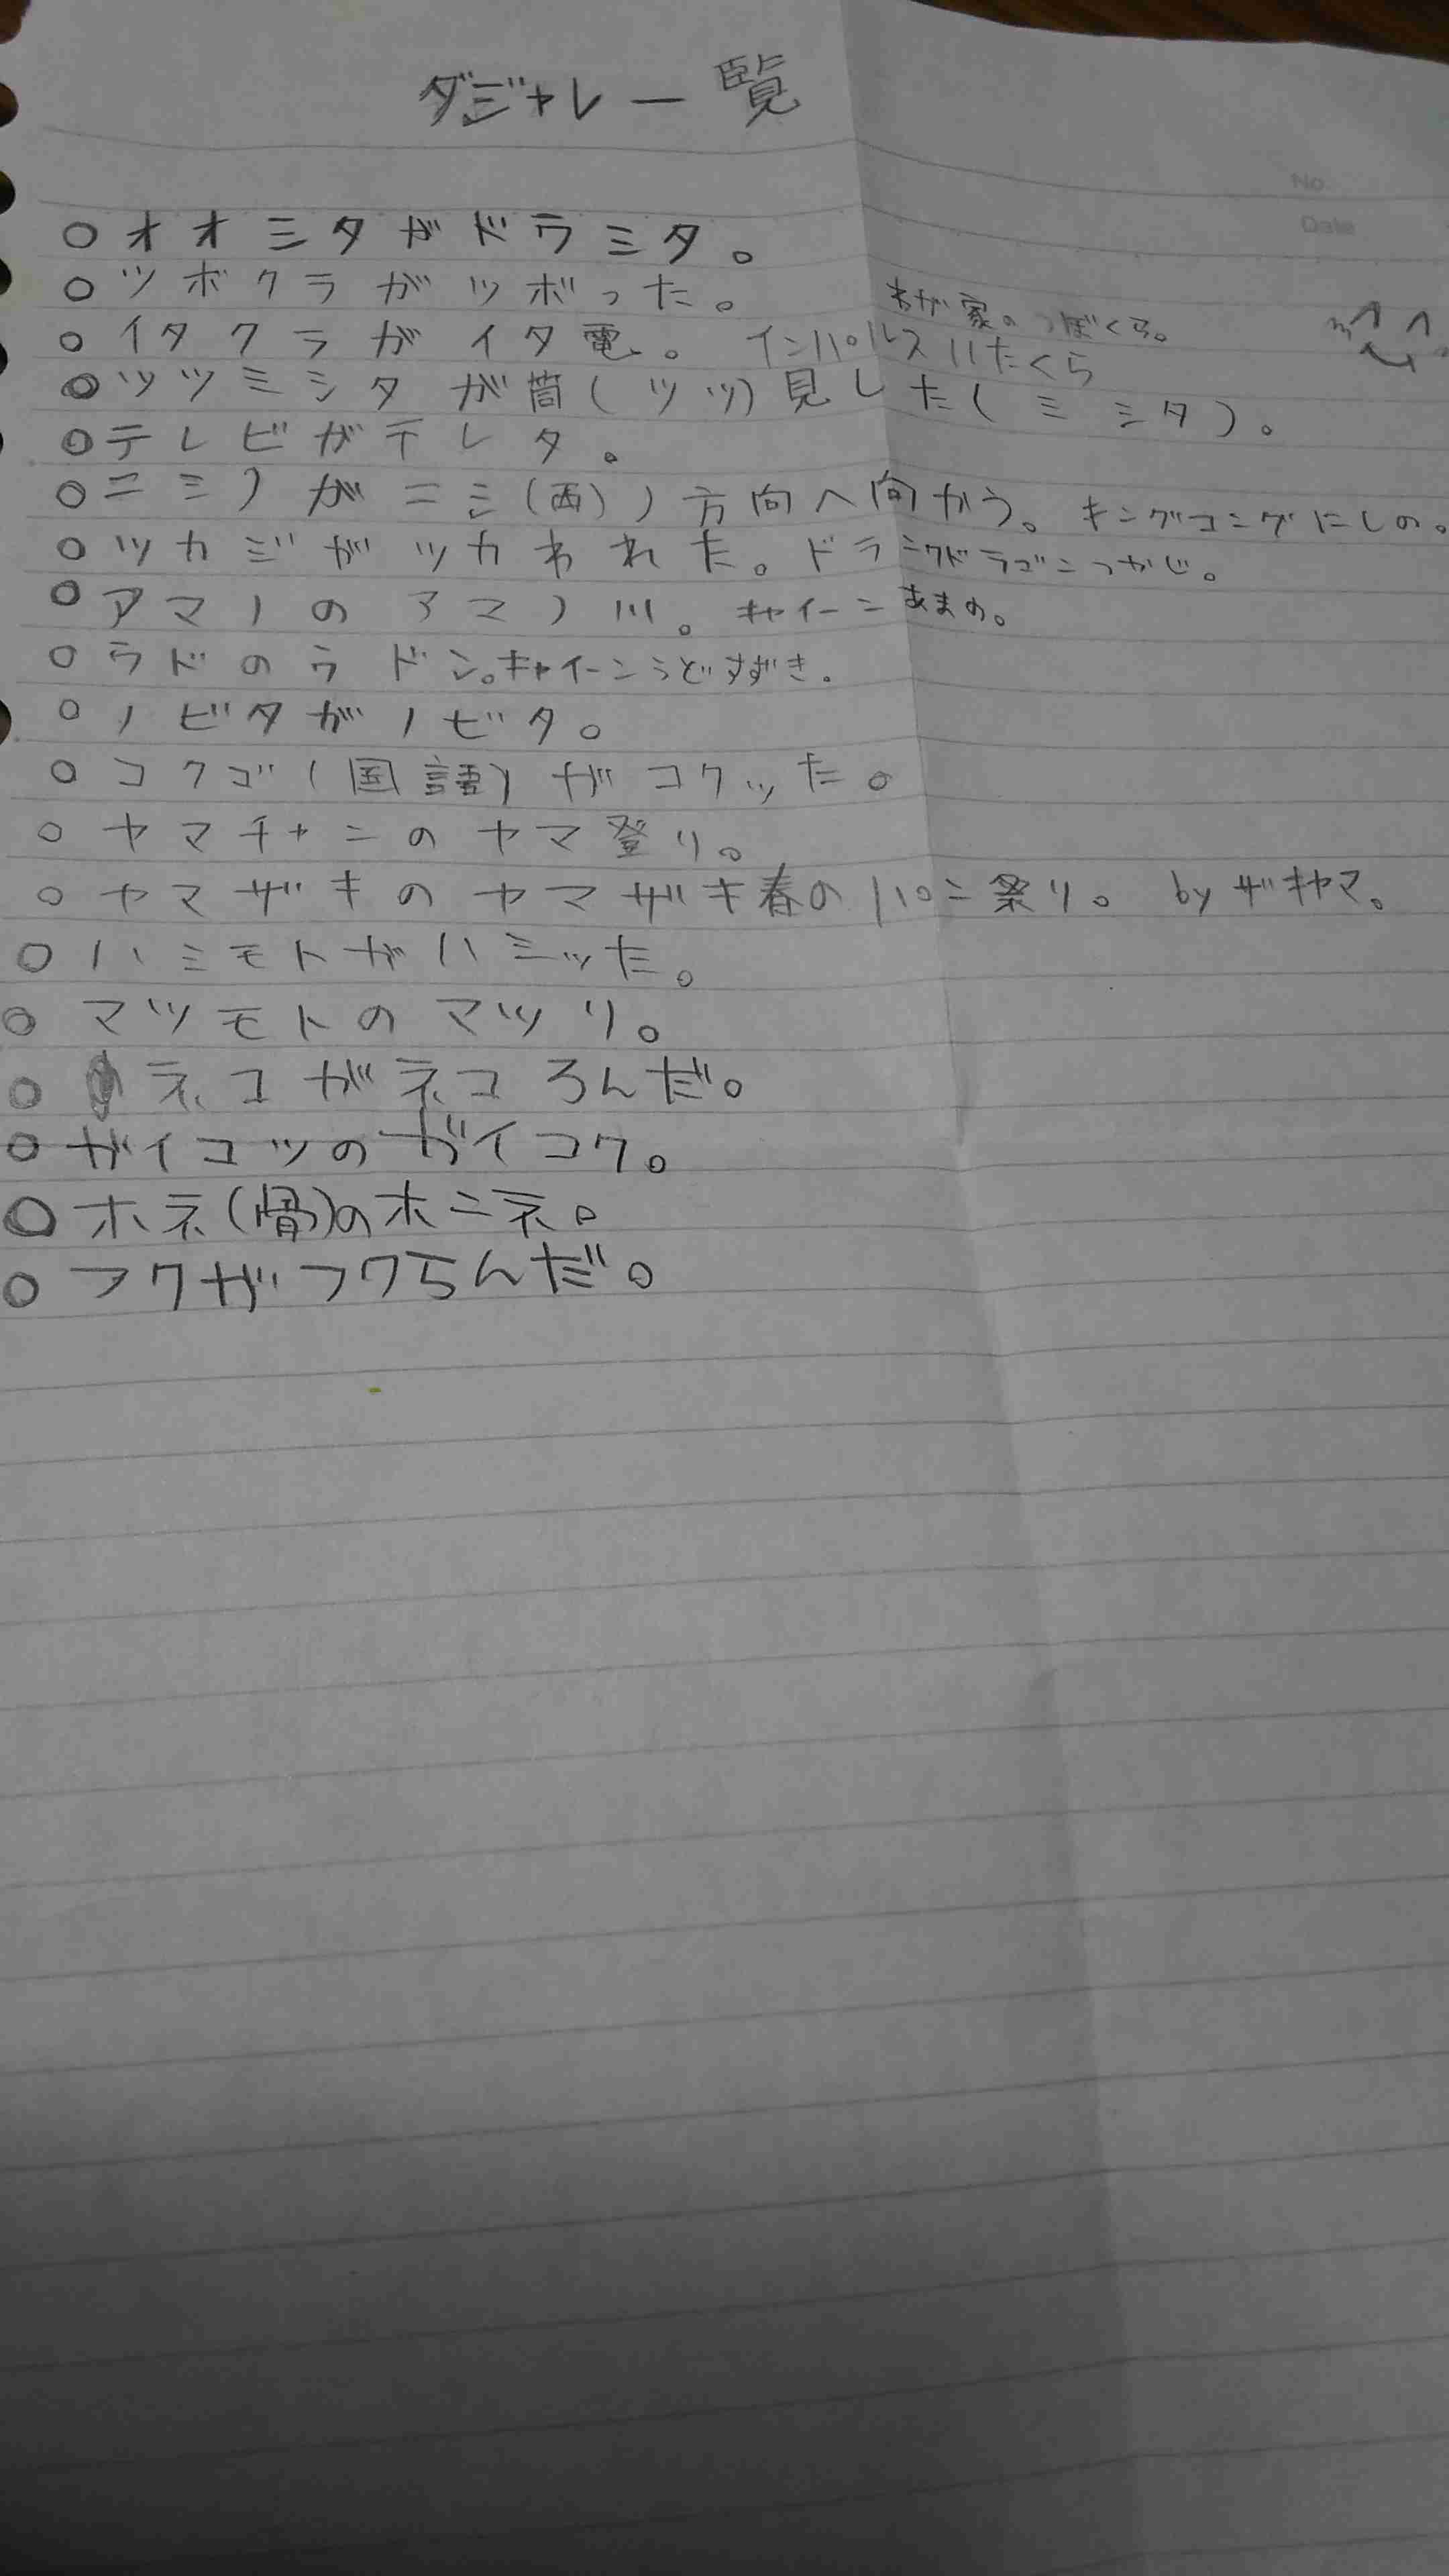 ダジャレ一覧
No
Date
○オオミタガドラミタ。
○ツボクラガツボった。 わが家のつぼくら。
○イタクラガイタ電。 インパルスいたくら
○ツツミシタが筒(ツツ)見した(ミシタ)。
○テレビガテレタ。
○ニシノがニシ(西)ノ方向へ向かう。 キングコングにしの。
○ツカジガツカわれた。ドランクドラゴンつかじ。
○アマノのアマノ川。キャイーンあまの。
○ウドのウドン。キャイーンうどすずき。
○ノビタガノビタ。
○コクゴ(国語)ガコクッた。
○ヤマチャンのヤマ登り。
○ヤマザキのヤマザキ春のパン祭り。 byザキヤマ。
○ハシモトガハシッた。
○マツモトのマツリ。
○ネコガネコろんだ。
○ガイコツのガイコク。
○ホネ(骨)のホンネ。
○フクガフクらんだ。